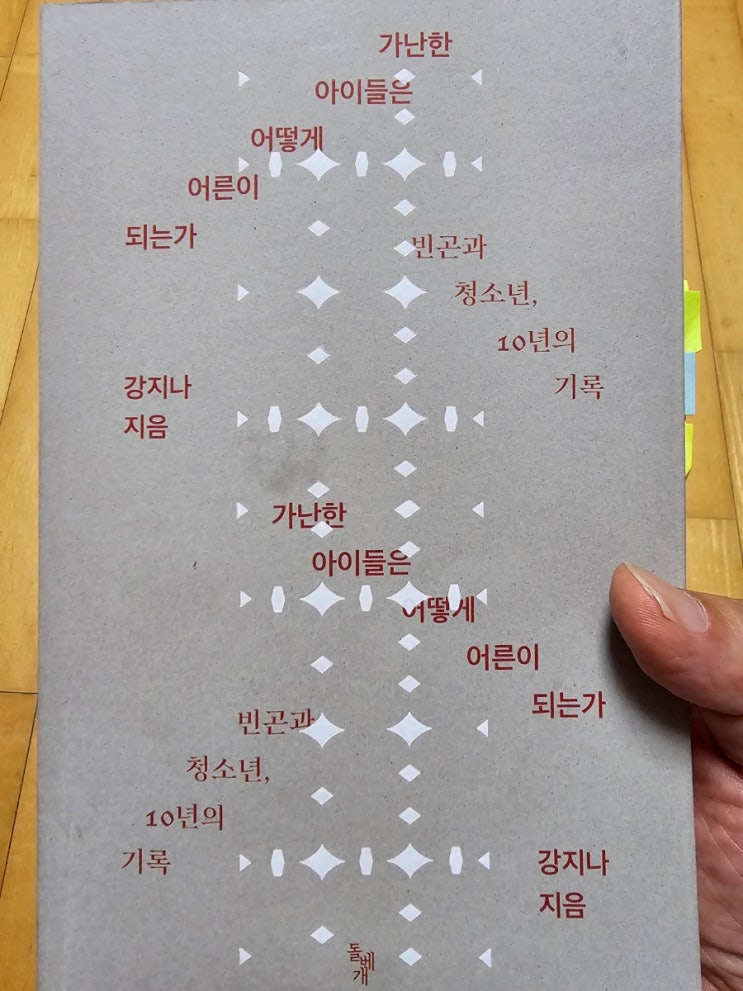 가난한
아이들은
어떻게
어른이
되는가
빈곤과
청소년,
10년의
기록
강지나
지음
가난한
아이들은
어떻게
어른이
되는가
빈곤과
청소년,
10년의
기록
강지나
지음
돌베개